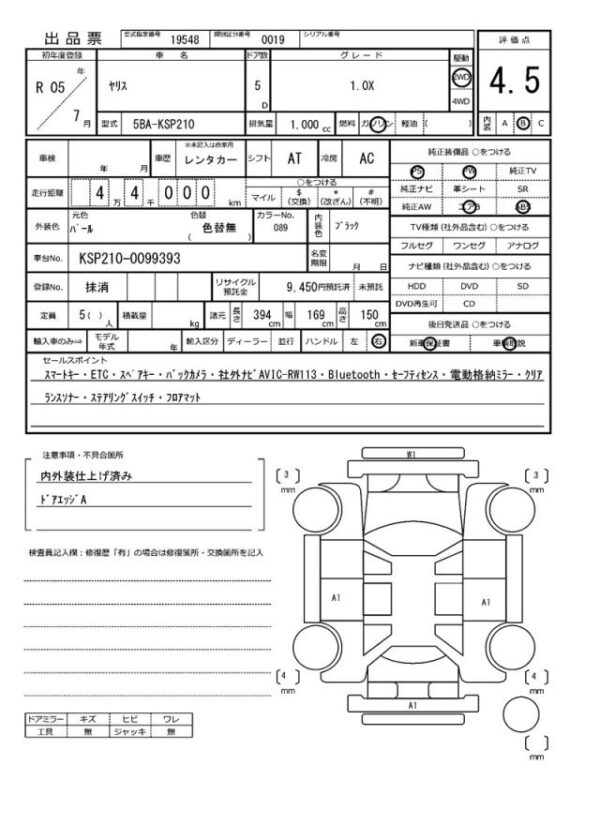 出品票 型式指定番号 19548 類別区分番号 0019 シリアル番号
評価点
初年度登録 車名 ドア数 グレード 駆動
R 05 年 ヤリス 5 D 1.0X 2WD 4WD
4.5
7 月 型式 5BA-KSP210 排気量 1,000 cc 燃料 ガソリン 軽油 ( )
内装 A B C
車検 年 月 車歴 ※未記入は自家用 レンタカー シフト AT 冷房 AC
純正装備品 ○をつける
PS PW 純正TV
走行距離 4 万 4 千 0 0 0 km ○をつける マイル $ (交換) * (改ざん) # (不明)
純正ナビ 革シート SR
純正AW エアB ABS
外装色 元色 パール 色替 ( 色替無 ) カラーNo. 089 内装色 ブラック
TV種類(社外品含む) ○をつける
フルセグ ワンセグ アナログ
車台No. KSP210-0099393 名変期限 月 日
ナビ種類(社外品含む) ○をつける
登録No. 抹消 リサイクル預託金 9,450円預託済 未預託
HDD DVD SD
DVD再生可 CD
定員 5( ) 人 積載量 kg 諸元 長さ 394 cm 幅 169 cm 高さ 150 cm
後日発送品 ○をつける
輸入車のみ⇒ モデル年式 年 輸入区分 ディーラー 並行 ハンドル 左 右
新車保証書 車輌取説
セールスポイント
スマートキー・ETC・スペアキー・バックカメラ・社外ナビAVIC-RW113・Bluetooth・セーフティセンス・電動格納ミラー・クリア
ランスソナー・ステアリングスイッチ・フロアマット
注意事項・不具合箇所
内外装仕上げ済み
ドアエッジA
検査員記入欄：修復歴「有」の場合は修復箇所・交換箇所を記入
W1
3 mm
3 mm
A1
A1
4 mm
4 mm
A1
mm
ドアミラー キズ ヒビ ワレ
工具 無 ジャッキ 無